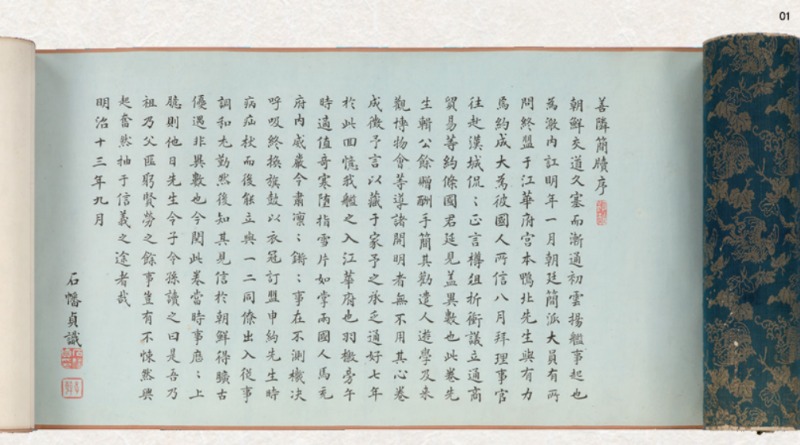 01
善隣簡牘序
朝鮮交道久塞而漸通初雲揚艦事起也
為激內訌明年一月朝廷簡派大員有所
問終盟于江華府宮本鴨北先生與有力
焉約成大為彼國人所信八月拜理事官
往赴漢城侃〻正言樽俎折衝議立通商
貿易善約條國君廷見蓋異數也此卷先
生輶公餘贈酬手簡其勸遣人遊學及來
觀博物會等導諸開明者無不用其心卷
成徵予言以藏于家予之承乏通好七年
於此回憶我艦之入江華府也羽檄旁午
時適值奇寒墮指雪片如掌兩國人馬充
府內威嚴令肅凛〻鏘〻事在不測機決
呼吸終換旗鼓以衣冠訂盟申約先生時
病痁杖而後能立與一二同僚出入從事
調和尤勤然後知其見信於朝鮮得曠古
優遇非異數也今閱此卷當時事歷〻上
聽則他日先生令子令孫讀之曰是吾乃
祖乃父匪躬賢勞之餘事豈有不悚然興
起奮然袖于信義之途者哉
明治十三年九月
石幡貞識